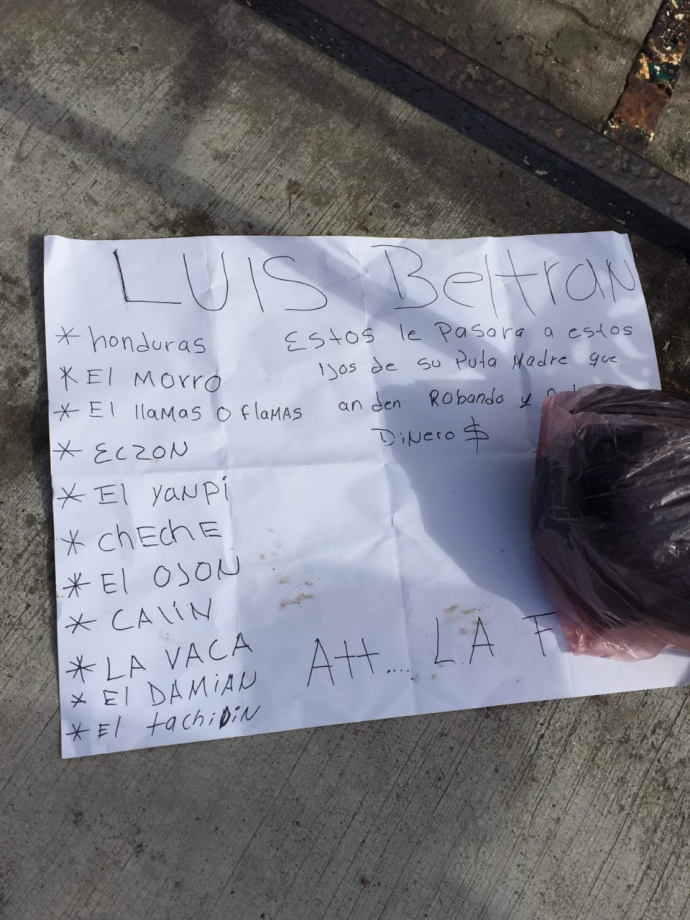 LUIS Beltran
* honduras
* El Morro
* El llamas o flamas
* Eczon
* El yanpi
* chEchE
* El OJON
* CALIN
* LA VACA
* El DAMIAN
* El tachiDin
Estos le Pasara a estos
ijos de su Puta Madre que
anden Robando y
DiNero $
Att.... LA